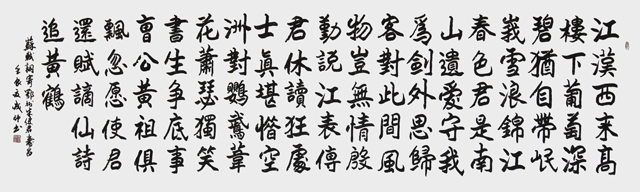 江漢西來高
樓下葡萄深
碧猶自帶岷
峩雪浪錦江
春色君是南
山遺愛守我
爲劍外思歸
客對此間風
物豈無情慇
勤說江表傳
君休讀狂處
士眞堪惜空
洲對鸚鵡葦
花蕭瑟獨笑
書生爭底事
曹公黃祖俱
飄忽愿使君
還賦謫仙詩
追黃鶴
蘇軾詞寄鄂州朱使君壽昌
壬辰